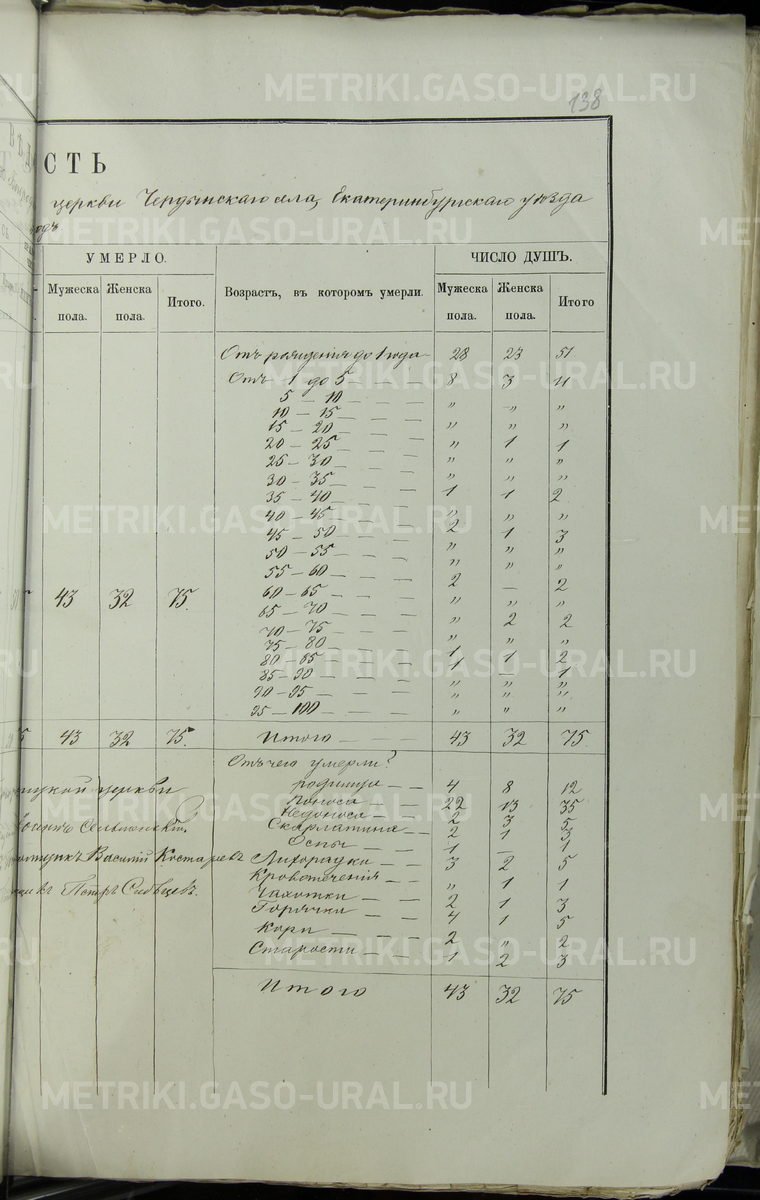 METRIKI.GASO-URAL.RU
138
СТЬ
церкви Чердынскаго села, Екатеринбургскаго уѣзда
годъ
УМЕРЛО. ЧИСЛО ДУШЪ.
Мужеска пола. Женска пола. Итого. Возрастъ, въ которомъ умерли. Мужеска пола. Женска пола. Итого
Отъ рожденія до 1 года 28 23 51
Отъ 1 до 5 — 8 3 11
5 — 10 — " — "
10 — 15 — " " "
15 — 20 — " " "
20 — 25 — " 1 1
25 — 30 — " " "
30 — 35 — " " "
35 — 40 — 1 1 2
40 — 45 — " " "
45 — 50 — 2 1 3
50 — 55 — " " "
55 — 60 — " " "
60 — 65 — 2 — 2
43 32 75.
65 — 70 — " " "
70 — 75 — " 2 2
75 — 80 — " " "
80 — 85 — 1 1 2
85 — 90 — 1 — 1
90 — 95 — " " "
95 — 100 — " " "
43 32 75. Итого — 43 32 75.
Отъ чего умерли?
церкви родимца — 4 8 12
Поноса — 22 13 35
Недоноса — 2 3 5
Скарлатина — 2 1 3
Оспы — 1 — 1
Василій Костаревъ Лихорадки — 3 2 5
Кровотеченія — " 1 1
Петръ Чахотки — 2 1 3
Горячки — 4 1 5
Кори — 2 " 2
Старости — 1 2 3
Итого 43 32 75